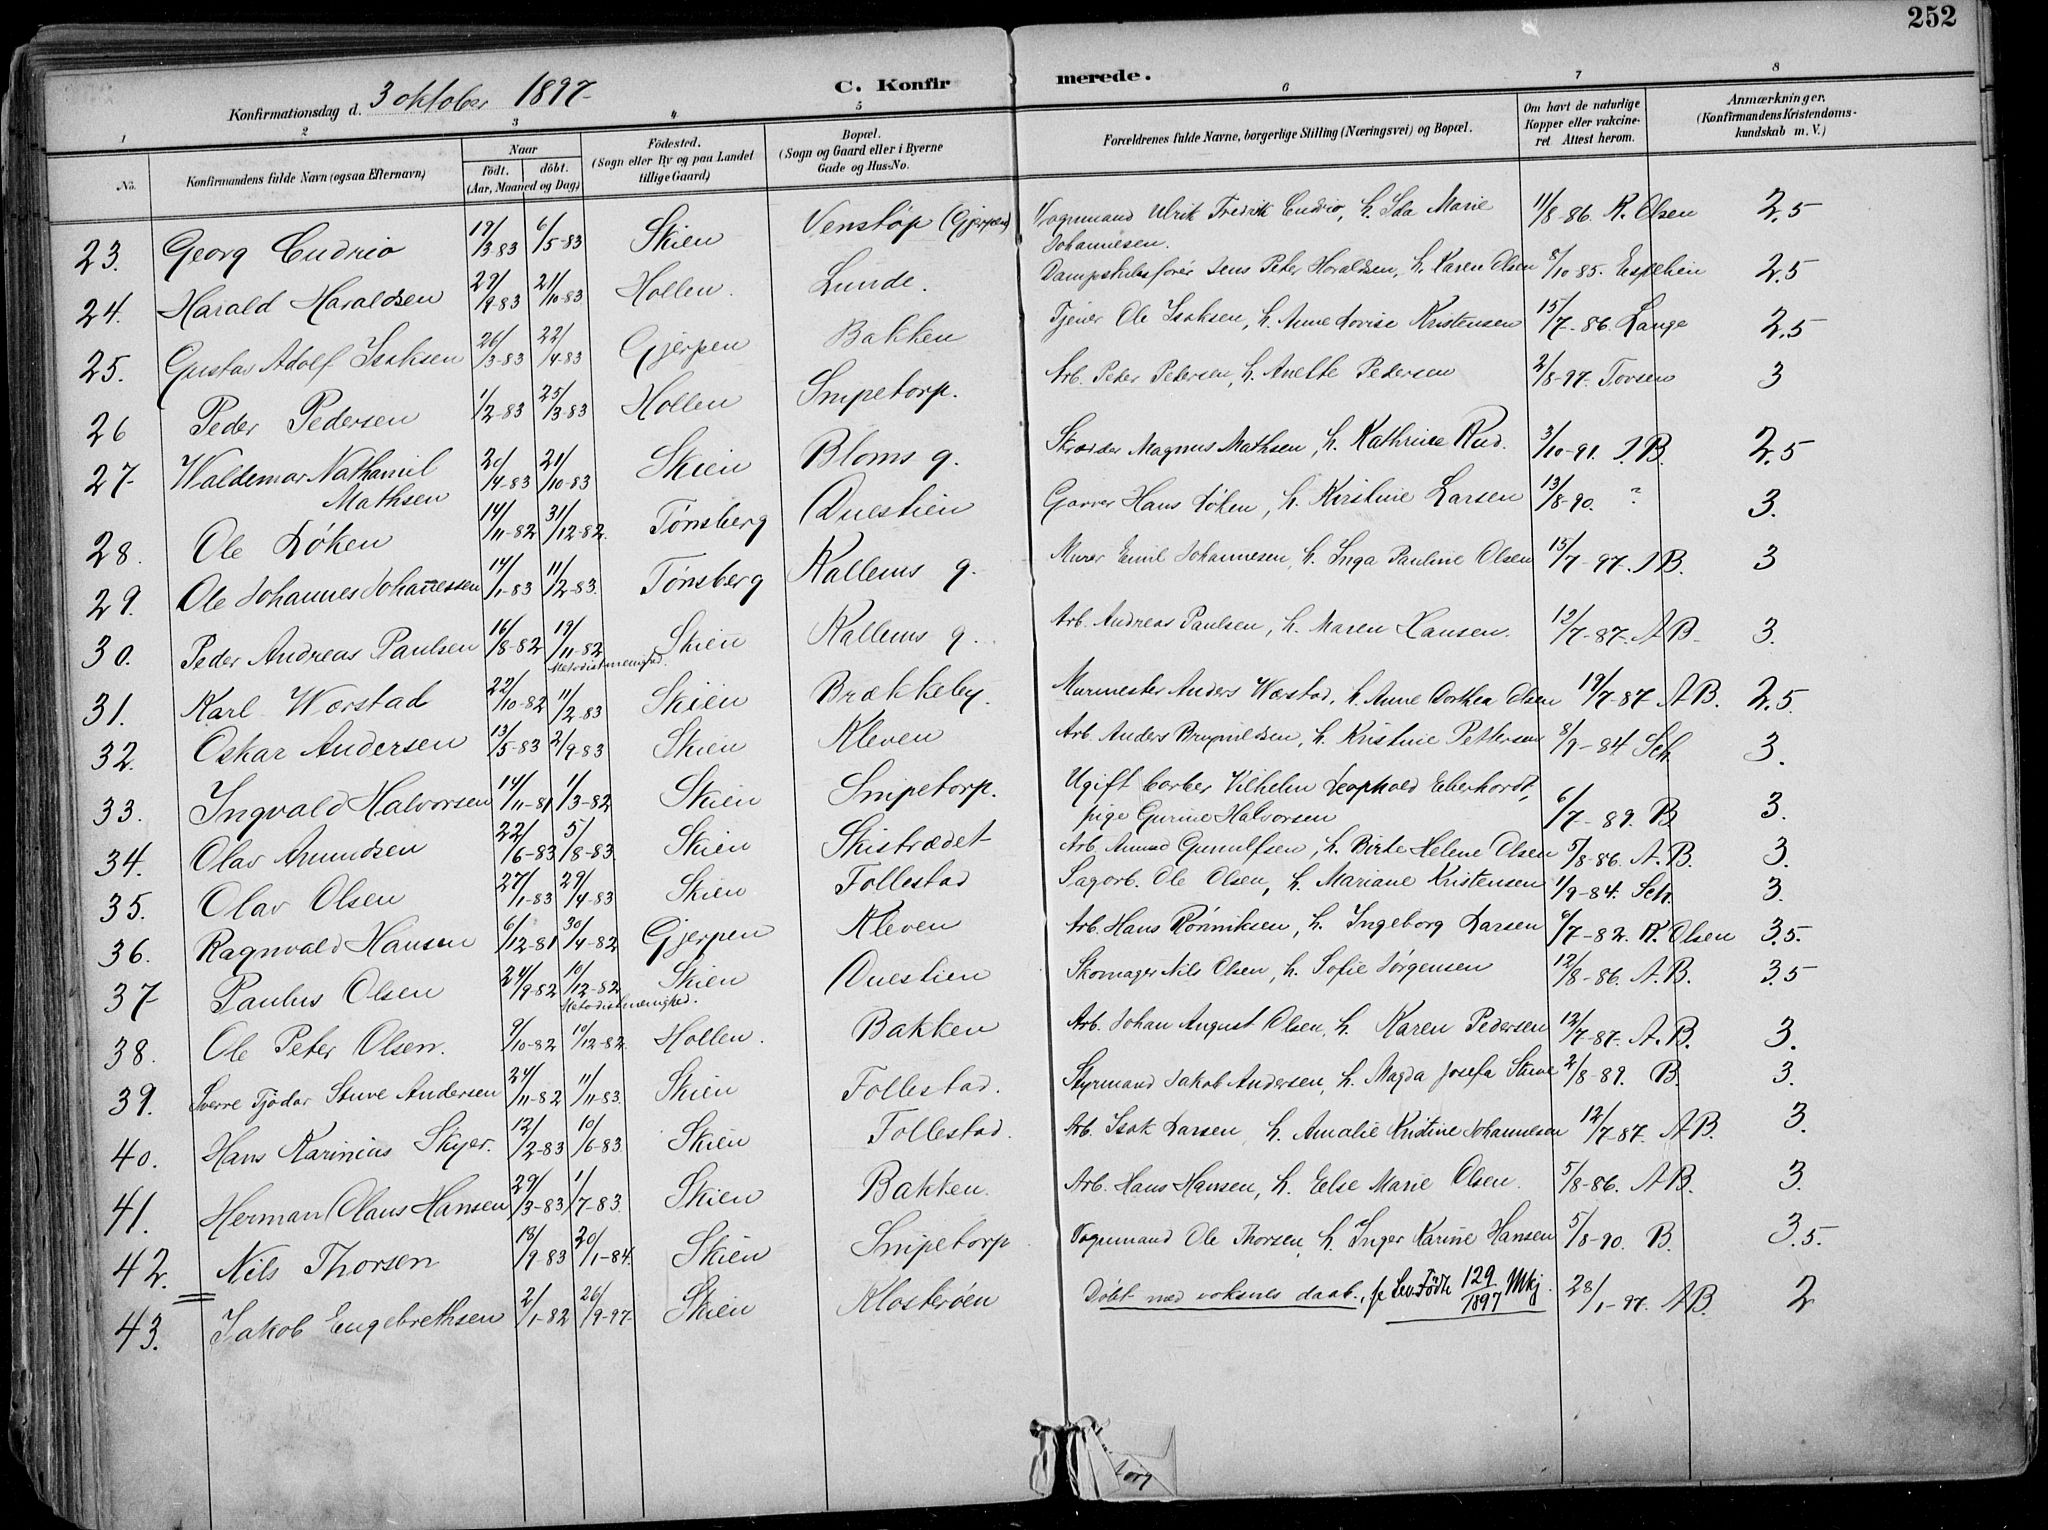 252
Konfirmationsdag d. 3 oktober 1897.
C. Konfirmerede.
1 2 3 4 5 6 7 8
No. Konfirmandens fulde Navn (ogsaa Efternavn) Naar födt. döbt. (Aar, Maaned og Dag) Födested. (Sogn eller By og paa Landet tillige Gaard) Bopæl. (Sogn og Gaard eller i Byerne Gade og Hus-No. Forældrenes fulde Navne, borgerlige Stilling (Næringsvei) og Bopæl. Om havt de naturlige Kopper eller vakcineret Attest herom. Anmærkninger. (Konfirmandens Kristendomskundskab m. V.)
23. Georg Cudrio 19/3-83 6/5-83 Skien Venstöp (Gjerpen) Vognmand Ulrik Fredrik Cudrio, h. Ida Marie Johannesen. 11/8-86. R. Olsen 2,5
24. Harald Haraldsen 29/9-83 21/10-83 Hollen. Lunde. Dampskibsförer Jens Peter Haraldsen, h. Karen Olsen 8/10-85. Espelien 2,5
25. Gustav Adolf Isaksen 26/3-83 22/4-83 Gjerpen Bakken Tjener Ole Isaksen, h. Anne Lovise Kristensen 15/7-86. Lange 2,5
26 Peder Pedersen 1/2-83 25/3-83 Hollen Snipetorp. Arb. Peder Pedersen, h. Anette Pedersen 2/8-97. Tovsen 3
27. Waldemar Nathanil Mathsen 20/4-83 21/10-83 Skien Bloms g. Skrædder Magnus Mathsen, h. Kathrine Rud. 3/10-91. J.B. 2,5
28. Ole Löken 14/11-82 31/12-82. Tönsberg Duestien Garver Hans Löken, h. Kirstine Larsen 13/8-90. ? 3.
29. Ole Johannes Johannessen 14/1-83 11/2-83. Tönsberg Kallems g. Murer Emil Johannesen, h. Inga Pauline Olsen 15/7-97. J B. 3
30. Peder Andreas Paulsen 16/8-82 19/11-82 Metodistmenighed. Skien Kallems g. Arb. Andreas Paulsen, h. Maren Hansen. 12/7-87. A B. 3.
31. Karl Wærstad 22/10-82 11/2-83 Skien Brækkeby. Murmester Anders Wæstad, h. Anne Dorthea Olsen 19/7-87 A B. 2,5.
32. Oskar Andersen 13/5-83 2/9-83 Skien Kleven Arb. Anders Brynildsen, h. Kristine Pettersen 8/9-84 Sch. 3.
33. Ingvald Halvorsen 14/11-81 1/3-82 Skien Snipetorp. Ugift Garber Vilhelm Leophold Eberhardt, pige Gurine Halvorsen 6/7-89. B 3.
34. Olav Amundsen 22/6-83 5/8-83. Skien Skistrædet Arb. Amund Gunulfsen, h. Birte Helene Olsen 5/8-86. A. B. 3.
35. Olav Olsen 27/1-83 29/4-83 Skien Follestad Sagarb. Ole Olsen, h. Mariane Kristensen 1/9-84. Sch. 3.
36. Ragnvald Hansen 6/12-81 30/4-82 Gjerpen Kleven Arb. Hans Rönniksen, h. Ingeborg Larsen 6/7-82. R. Olsen 3,5.
37 Paulus Olsen 24/9-82 10/12-82 Metodistmenighed. Skien Duestien Skomager Nils Olsen, h. Sofie Jörgensen 12/8-86. A. B. 3.5
38. Ole Peter Olsen. 9/10-82 10/12-82. Hollen. Bakken Arb. Johan August Olsen, h. Karen Pedersen 12/7-87. A. B. 3.
39. Sverre Fjödar Stuve Andersen 24/11-82 11/11-83. Skien Follestad. Styrmand Jakob Andersen, h. Magda Josefa Stuve 2/8-89. B. 3.
40. Hans Karinius Skyer. 12/2-83 10/6-83 Skien Follestad. Arb. Isak Larsen, h. Amalie Kristine Johannesen 12/7-87. A B. 3.
41. Herman Olaus Hansen 29/3-83 1/7-83. Skien Bakken. Arb. Hans Hansen, h. Else Marie Olsen. 5/8-86. A B. 3.
42. Nils Thorsen 18/9-83 20/1-84. Skien Snipetorp Vognmand Ole Thorsen, h. Inger Karine Hansen 5/8-90. B. 3.5.
43. Jakob Engebrethsen 2/1-82 26/9-97. Skien Klosteröen Döbt med voksnes daab., se Lev.Födte 129/1897 Mkj. 28/1-97. A B. 2